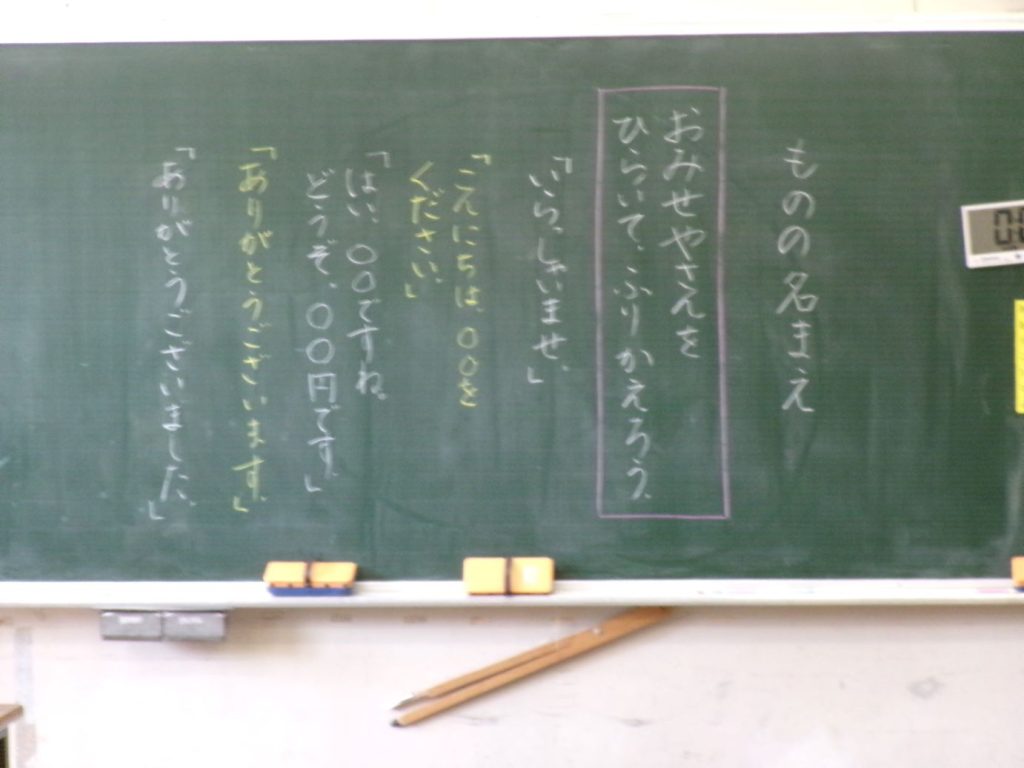 ものの名まえ
おみせやさんを
ひらいて、ふりかえろう。
「いらっしゃいませ。」
「こんにちは、〇〇を
ください。」
「はい、〇〇ですね。
どうぞ、〇〇円です。」
「ありがとうございます。」
「ありがとうございました。」